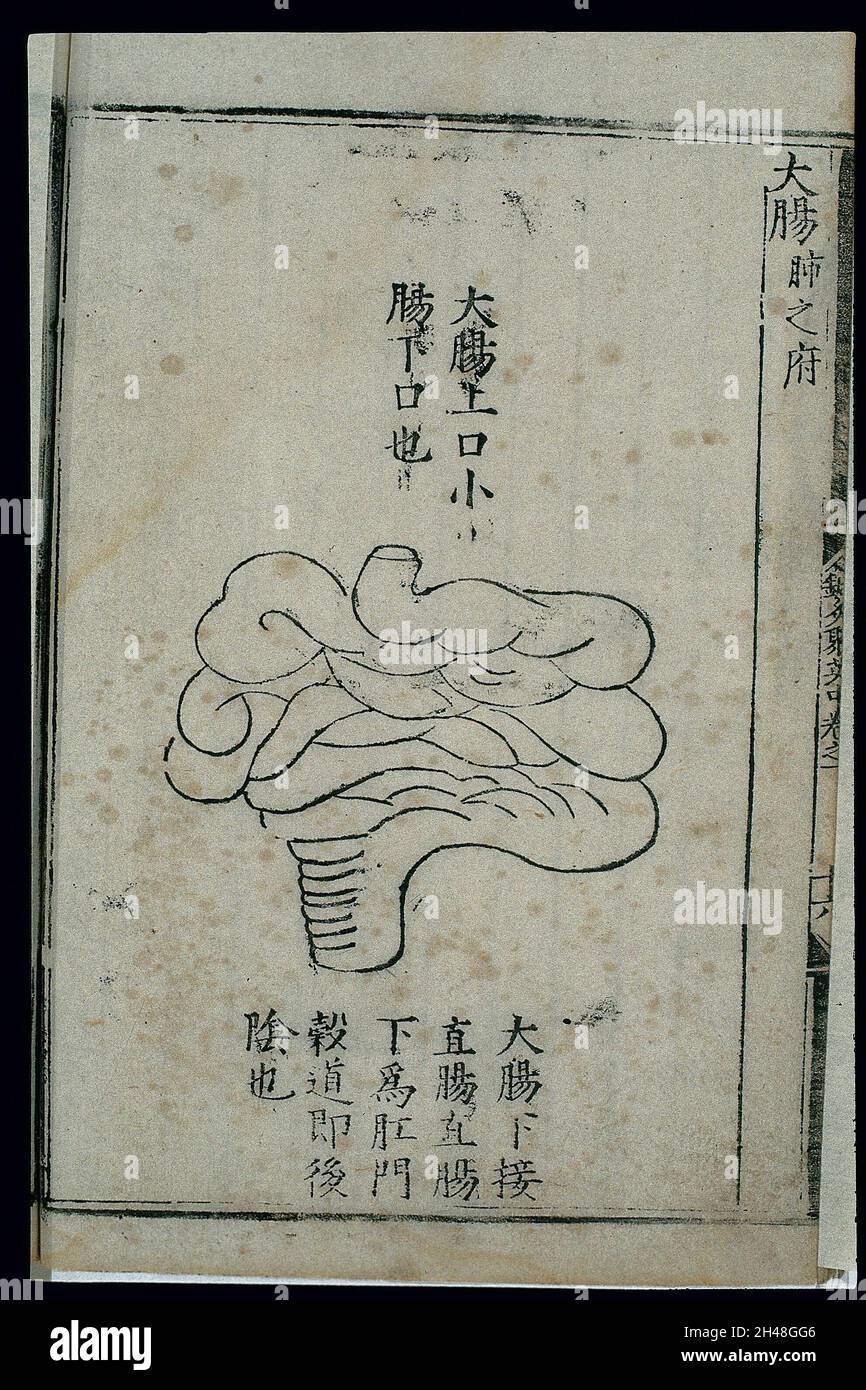 大腸肺之府
大腸上口小
腸下口也
大腸下接
直腸直腸
下為肛門
穀道即後
陰也
鍼灸聚英卷之
alamy
Image ID: 2H48GG6
www.alamy.com